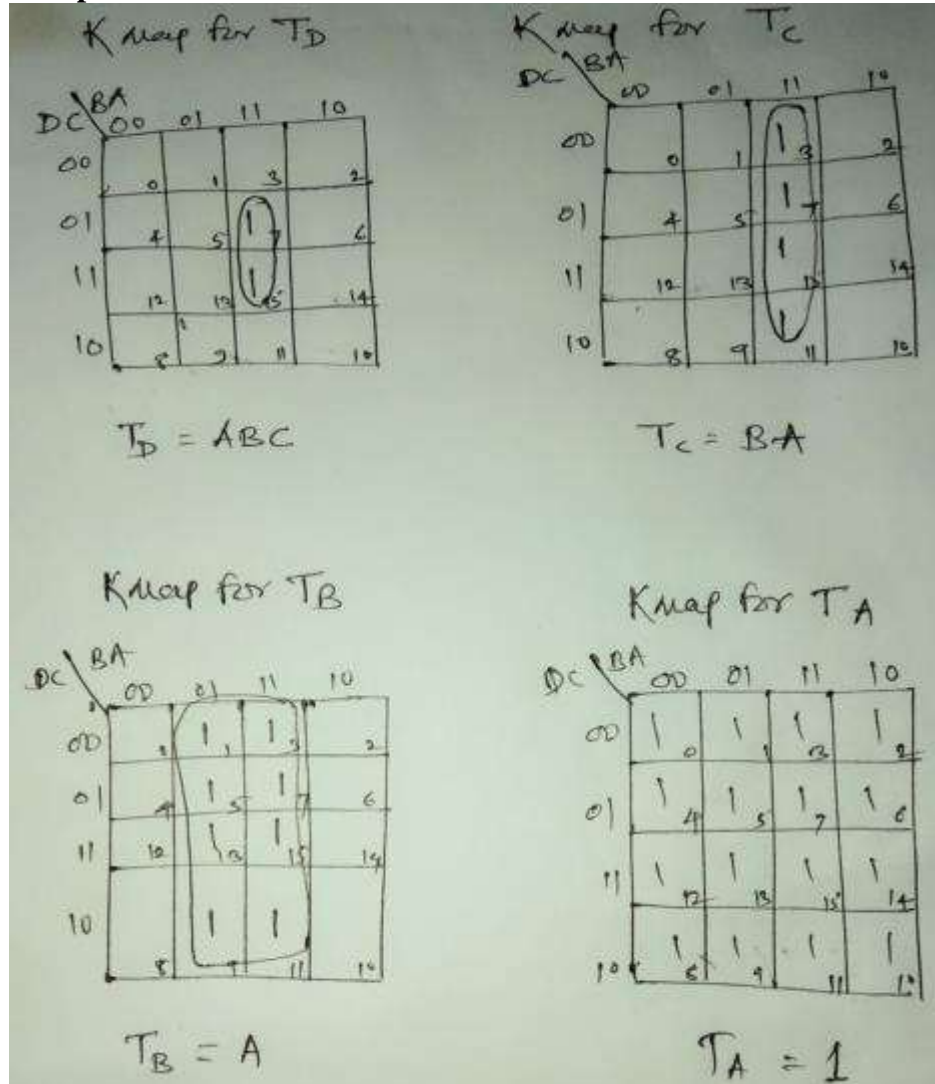 K map for T_D
DC \ BA 00 01 11 10
00 0 1 3 2
01 4 5 1 7 6
11 12 13 1 15 14
10 8 9 11 10
T_D = ABC
K map for T_C
DC \ BA 00 01 11 10
00 0 1 1 3 2
01 4 5 1 7 6
11 12 13 1 15 14
10 8 9 1 11 10
T_C = BA
K map for T_B
DC \ BA 00 01 11 10
00 1 1 1 3 2
01 4 1 5 1 7 6
11 12 1 13 1 15 14
10 8 1 9 1 11 10
T_B = A
K map for T_A
DC \ BA 00 01 11 10
00 1 0 1 1 1 3 1 2
01 1 4 1 5 1 7 1 6
11 1 12 1 13 1 15 1 14
10 1 8 1 9 1 11 1 10
T_A = 1